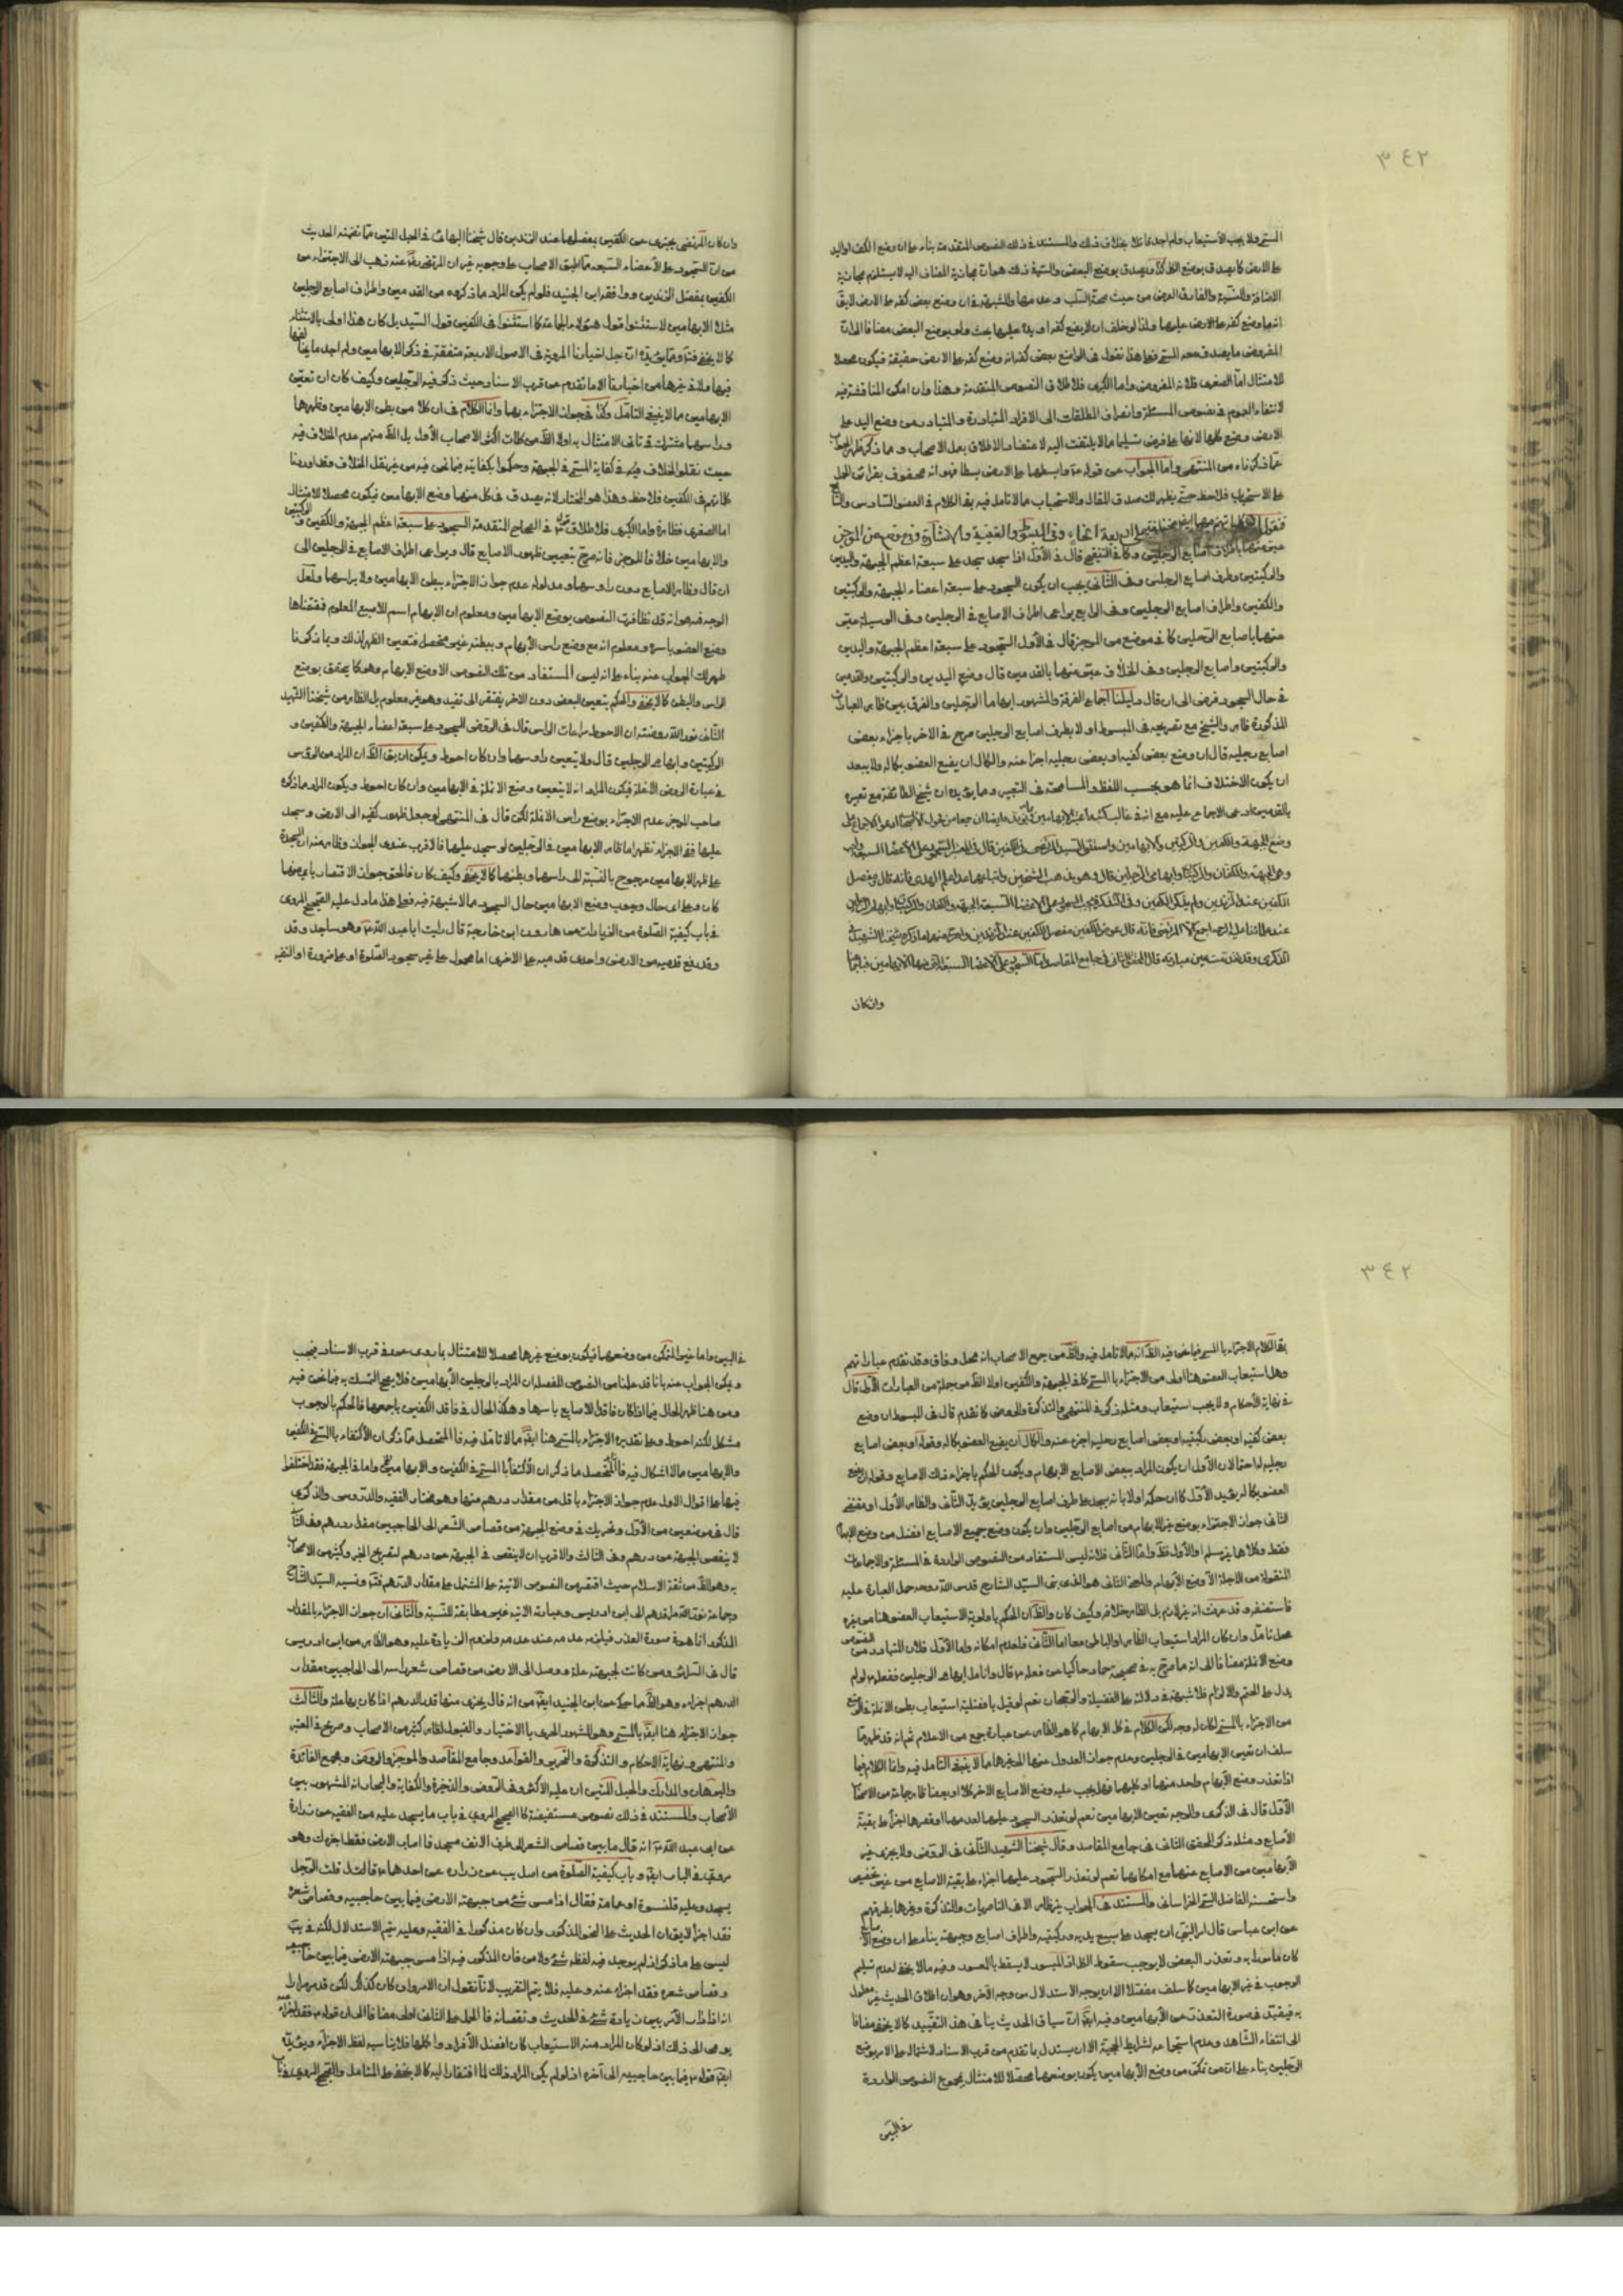 ٣٤٢
المسمى ولا يجب الاستيعاب ولم اجد بخلاف ذلك والمستند في ذلك النصوص المتقدمة بناء على ان وضع الكف او اليد
على الارض كما يصدق بوضع الكل كذا يصدق بوضع البعض
الاضافة والنسبة والفارق العرض من حيث صحة السلب وعدمها
المفروض مما يصدق معه المسمى فعلى هذا نقول في الواضع بعض كفه انه وضع كفه على الارض حقيقة فيكون محصلا
للامتثال اما الصغرى فلانه المفروض واما الكبرى فلاطلاق النصوص المتقدمة وهذا وان امكن المناقشة فيه
لانتفاء العموم في نصوص المسئلة وانصراف المطلقات الى الافراد المتبادرة والمتبادر من وضع اليد على
الارض وضع كلها لانها على فرض تسليمها مما لا يلتفت اليه لاعتضاد الاطلاق بعمل الاصحاب ومما ذكر ظهر الجواب
عما ذكرناه من المنتهى واما الجواب عن قوله وابسطهما على الارض بسطا فهو انه محفوف بقرائن الحمل
على الاستحباب فلاحظ حتى يظهر لك صدق المقال والاستحباب مما لا تامل فيه بقى الكلام في العضو السادس والسابع
عين منهما باطراف اصابع الرجلين وكذا في النفيع قال في الاول اذا سجد سجد على سبعة اعظم الجبهة واليدين
والركبتين وطرف اصابع الرجلين وفي الثاني يجب ان يكون السجود على سبعة اعضاء الجبهة والركبتين
والكفين واطراف اصابع الرجلين وفي الرابع يراعى اطراف الاصابع في الرجلين وفي الوسيلة عبر
عنهما باصابع الرجلين كما في موضع من الموجز قال في الاول السجود على سبعة اعظم الجبهة واليدين
والركبتين واصابع الرجلين وفي الخلاف عبر عنهما بالقدمين قال وضع اليدين والركبتين والقدمين
في حال السجود فرض الى ان قال دليلنا اجماع الفرقة والمشهور ابهاما الرجلين والفرق بين ظاهر العبارات
المذكورة ظاهر والشيخ مع تصريحه في المبسوط اولا بطرف اصابع الرجلين صرح في الاخر باجزاء بعض
اصابع رجليه قال ان وضع بعض كفيه او بعض رجليه اجزا عنه والكمال ان يضع العضو بكماله ولا يبعد
ان يكون الاختلاف انما هو بحسب اللفظ والمسامحة في التعبير ومما يؤيده ان شيخ الطائفة مع تعبيره
وضع الجبهة والكفين والركبتين والابهامين واستثنى السيد المرتضى في الكفين
وهي الجبهة والكفان والركبتان وابهاما الرجلين
الكفين عند الزندين
وان كان

وان كان المرتضى يجتزى عن الكفين بمفصلهما عند الزندين قال شيخنا البهائي في الحبل المتين ما تضمنه الحديث
من ان السجود على الاعضاء السبعة مما اطبق الاصحاب على وجوبه غير ان المرتضى رضي الله عنه ذهب الى الاجتزاء من
الكفين بمفصل الزندين ووافقه ابن الجنيد فلو لم يكن المراد مما ذكره من القدمين واطراف اصابع الرجلين
مثلا الابهامين لاستثنوا قول هؤلاء الجماعة كما استثنوا في الكفين قول السيد بل كان هذا اولى بالاستثناء
كما لا يخفى
فيها ولا في غيرها من اخبارنا الا ما تقدم عن قرب الاسناد حيث ذكر فيه الرجلين وكيف كان ان تعين
الابهامين مما لا ينبغي التامل وكذا في جواز الاجتزاء بهما وانما الكلام في ان كلا من بطن الابهامين وظهرهما
وراسهما مشترك في تاتى الامتثال به اولا الظ من كلمات اكثر الاصحاب الاول بل الظ منهم عدم الخلاف فيه
حيث نقلوا الخلاف في كفاية المسمى في الجبهة وحكموا بكفايته فيما نحن فيه من غير نقل الخلاف وقد اوردنا
كلماتهم في الكفين فلاحظ وهذا هو المختار لانه يصدق في كل منهما وضع الابهامين فيكون محصلا للامتثال
اما الصغرى فظاهرة واما الكبرى فلاطلاق قوله في الصحاح المتقدمة السجود على سبعة اعظم الجبهة والكفين والركبتين
والابهامين خلافا للموجز فانه صرح بتعيين ظهور الاصابع قال ويراعى اطراف الاصابع في الرجلين الى
ان قال وظاهر الاصابع دون رؤسها ومدلوله عدم جواز الاجتزاء ببطن الابهامين ولا براسهما ولعل
الوجه فيه هو انه قد تظافرت النصوص بوضع الابهامين ومعلوم ان الابهام اسم للاصبع المعلوم فمقتضاها
وضع العضو باسره ومعلوم انه مع وضع راس الابهام وبطنه غير محصل فتعين الظهر لذلك وبما ذكرنا
ظهر لك الجواب عنه بناء على انه ليس المستفاد من تلك النصوص الا وضع الابهام وهو كما يتحقق بوضع
الراس والبطن كما لا يخفى والحكم بتعيين البعض دون الاخر يفتقر الى تقييد وهو غير معلوم بل الظاهر من شيخنا الشهيد
الثاني نور الله روضته ان الاحوط مراعات الراس قال في الروض السجود على سبعة اعضاء الجبهة والكفين و
الركبتين وابهامي الرجلين قال ولا يتعين راوسهما وان كان احوط ويمكن ان يق الظ ان المراد من الرؤس
في عبارة الروض الانملة فيكون المراد انه لا يتعين وضع الانملة في الابهامين وان كان احوط ويكون المراد مما ذكره
صاحب الموجز عدم الاجتزاء بوضع راس الانملة لكن قال في المنتهى لو جعل ظهور كفيه الى الارض وسجد
عليها ففي الاجزاء نظر اما ظاهر الابهامين في الرجلين لو سجد عليهما فالاقرب عندي الجواز وظاهره ان السجدة
على ظهر الابهامين مرجوح بالنسبة الى راسهما وبطنهما كما لا يخفى وكيف كان فالحق جواز الاقتصار بايهما
كان وعلى اى حال وجوب وضع الابهامين حال السجود مما لا شبهة فيه فعلى هذا ما دل عليه الصحيح المروى
في باب كيفية الصلوة من الزيادات عن هارون بن خارجة قال رايت ابا عبد الله وهو ساجد وقد
وقد رفع قدميه من الارض واحدى قدميه على الاخرى اما محمول على غير سجود الصلوة او على ضرورة او التقية

٣٤٢
بقى الكلام الاجتزاء بالمسمى فيما نحن فيه الظ انه مما لا تامل فيه والظ من جمع الاصحاب انه محل وفاق وقد تقدم عباراتهم
وهل استيعاب العضو هنا اولى من الاجتزاء بالمسمى كما في الجبهة والكفين اولا الظ من جملة من العبارات الاول قال
في نهاية الاحكام ولا يجب استيعاب ومثله ذكر في المنتهى والتذكرة والروض كما تقدم قال في المبسوط ان وضع
بعض كفيه او بعض ركبتيه او بعض اصابع رجليه اجزء عنه والكمال ان يضع العضو بكماله وقوله او بعض اصابع
رجليه له احتمالان الاول ان يكون المراد ببعض الاصابع الابهام ويكون الحكم باجزاء ذلك الاصابع وقوله ان يضع
العضو بكماله يفيد الاول كما ان حكمه اولا بانه يسجد على طرف اصابع الرجلين يؤيد الثاني والظاهر الاول او مقتضى
الثاني جواز الاجتزاء بوضع غير الابهام من اصابع الرجلين وان يكون وضع جميع الاصابع افضل من وضع الابهام
فقط وكلاهما غير مسلم اما الاول فظ واما الثاني فلانه ليس المستفاد من النصوص الواردة في المسئلة والاجماعات
المنقولة من الاجلة الا وضع الابهام والمعنى الثاني هو الذي بنى السيد الشارح قدس الله روحه حمل العبارة عليه
فاستضعفه وقد عرفت انه غير لازم بل الظاهر خلافه وكيف كان والظ ان الحكم باولوية الاستيعاب العضو هنا من غيره
محل تامل وان كان المراد استيعاب الظاهر او الباطن معا اما الثاني فلعدم امكانه واما الاول فلان المتبادر من النصوص
وضع الانملة مضافا الى انه ما صرح به في صحيحة حماد حاكيا عن فعله ع قال وانامل ابهامي الرجلين ففعله ع لو لم
يدل على الحتم والالزام فلا شبهة في دلالته على الفضيلة والرجحان نعم لو قيل بافضلية استيعاب بطن الانملة في الوضع
من الاجتزاء بالمسمى لكان له وجه لكن الكلام في كل الابهام كما هو الظاهر من عبارة جمع من الاعلام ثم انه قد ظهر مما
سلف ان تعين الابهامين في الرجلين وعدم جواز العدول عنهما الى غيرهما مما لا ينبغي التامل فيه وانما الكلام فيما
اذا تعذر وضع الابهام واحد منهما او كليهما فهل يجب عليه وضع الاصابع الاخر كلا او بعضا ظاهر جماعة من الاصحاب
الاول قال في الذكرى والوجه تعين الابهامين نعم لو تعذر السجود عليهما لعدمهما او قصرهما اجزأ على بقية
الاصابع ومثله ذكر المحقق الثاني في جامع المقاصد وقال شيخنا الشهيد الثاني في الروض ولا يجزي غير
الابهامين من الاصابع عنهما مع امكانهما نعم لو تعذر السجود عليهما اجزاء على بقية الاصابع من غير تخصيص
واستحسنه الفاضل السبزواري الخراساني والمستند في الجواب غير ظاهر الا في الناصريات والتذكرة وغيرها بطرقهم
عن ابن عباس قال امر النبي ان يسجد على سبع يديه وركبتيه واطراف اصابع وجبهته بناء على ان وضع الاصابع
كان مامورا به وتعذر البعض لا يوجب سقوط الكل اذ الميسور لا يسقط بالمعسور وفيه مما لا يخفى لعدم تسليم
الوجوب في غير الابهامين كما سلف مفصلا الا ان يوجه الاستدلال من وجه اخر وهو ان اطلاق الحديث غير معمول
به فيقيد في صورة التعذر من الابهامين وفيه ايضا ان سياق الحديث ينافى هذا التقييد كما لا يخفى مضافا
الى انتفاء الشاهد وعدم استجماعه لشرايط الحجية الا ان يستدل بما تقدم من قرب الاسناد لاشتماله على الامر بوضع
الرجلين بناء على ان من تمكن من وضع الابهامين يكون بوضعهما محصلا للامتثال بمجموع النصوص الواردة
في البين

في البين واما غير المتمكن من وضعهما فيكون بوضع غيرها محصلا للامتثال بما روى عنه في قرب الاسناد فيجب
ويمكن الجواب عنه بانا قد علمنا من النصوص المفصلة ان المراد بالرجلين الابهامين فلا يصح التمسك به فيما نحن فيه
ومن هنا ظهر الحال فيما اذا كان فاقدا للاصابع باسرها وهكذا الحال في فاقد الكفين باجمعها فالحكم بالوجوب
مشكل لكنه احوط وعلى تقديره الاجتزاء بالمسمى هنا ايضا مما لا تامل فيه فالمتحصل مما ذكر ان الاكتفاء بالمسمى في الكفين
والابهامين مما لا اشكال فيه واما في الجبهة فقد اختلفوا
فيها على اقوال الاول عدم جواز الاجتزاء باقل من مقدار درهم منها وهو مختار الفقيه والدروس والذكرى
قال في موضعين من الاول ويجزيك في وضع الجبهة من قصاص الشعر الى الحاجبين مقدار درهم وفي الثاني
لا ينقص الجبهة عن درهم وفي الثالث والاقرب ان لا ينقص في الجبهة عن درهم لتصريح الخبر وكثير من الاصحاب
به وهو الظ من ثقة الاسلام حيث اقتصر من النصوص الاتية على المشتمل على مقدار الدرهم فقط ونسبه السيد الشارح
وجماعة نور الله مراقدهم الى ابن ادريس وعبارته الاتية غير مطابقة للنسبة والثاني ان جواز الاجتزاء بالمقدار
المذكور انما هو في صورة العذر فيلزم عدمه عند عدمه ولزوم الزيادة عليه وهو الظاهر من ابن ادريس
قال في السرائر ومن كانت بجبهته علة ووصل الى الارض من قصاص شعر راسه الى الحاجبين مقدار
الدرهم اجزاه وهو الظ مما حكى عن ابن الجنيد ايضا من انه قال يجزى منها قدر الدرهم اذا كان بها علة والثالث
جواز الاجتزاء هنا ايضا بالمسمى وهو المشهور الحرى بالاختيار والقبول لظاهر كثير من الاصحاب وصريح في المعتبر
والمنتهى ونهاية الاحكام والتذكرة والتحرير والقواعد وجامع المقاصد والموجز والروض ومجمع الفائدة
والبرهان والمدارك والحبل المتين ان عليه الاكثر وفي الروض والذخيرة والكفاية والبحار انه المشهور بين
الاصحاب والمستند في ذلك نصوص مستفيضة كالصحيح المروي في باب ما يسجد عليه من الفقيه عن زرارة
عن ابي عبد الله ع انه قال ما بين قصاص الشعر الى طرف الانف مسجد فما اصاب الارض فقط اجزءك وهو
مروي في الباب ايضا وباب كيفية الصلوة من اصل يب عن زرارة عن احدهما ع قال قلت الرجل
يسجد وعليه قلنسوة او عمامة فقال اذا مس شئ من جبهته الارض فيما بين حاجبيه وقصاص شعره
فقد اجزأ لا يق ان الحديث على النحو المذكور وان كان مذكورا في الفقيه وعليه يتم الاستدلال لكنه في يب
ليس على ما ذكر اذ لم يوجد فيه لفظ شئ ولا من فان المذكور فيه اذا مس جبهته الارض فيما بين حاجبيه
وقصاص شعره فقد اجزاء عنه وعليه فلا يتم التقريب لانا نقول ان الامر وان كان كذلك لكن قد مر مرارا
انه اذا دار الامر بين زيادة شئ في الحديث ونقصانه فالحمل على الثاني اولى مضافا الى ان قوله ع فقد اجزأه
يومى الى ذلك اذ لو كان المراد منه الاستيعاب كان افضل الافراد واكملها فلا يناسبه لفظ الاجزاء ويؤيده
ايضا قوله ع فيما بين حاجبيه الى اخره اذ لو لم يكن المراد ذلك لما افتقار اليه كما لا يخفى على المتامل والصحيح المروي في باب